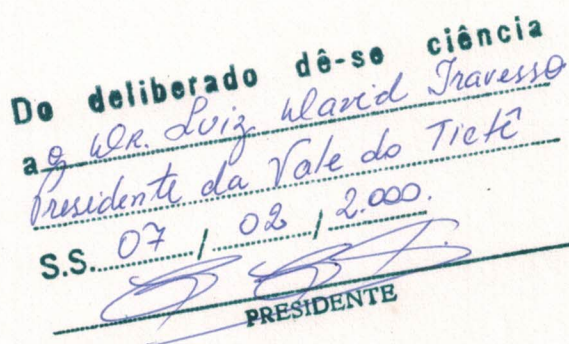 Do deliberado dê-se ciência
a o Dr. Luiz David Travesso
Presidente da Vale do Tietê
S.S. 07 / 02 / 2.000.
PRESIDENTE